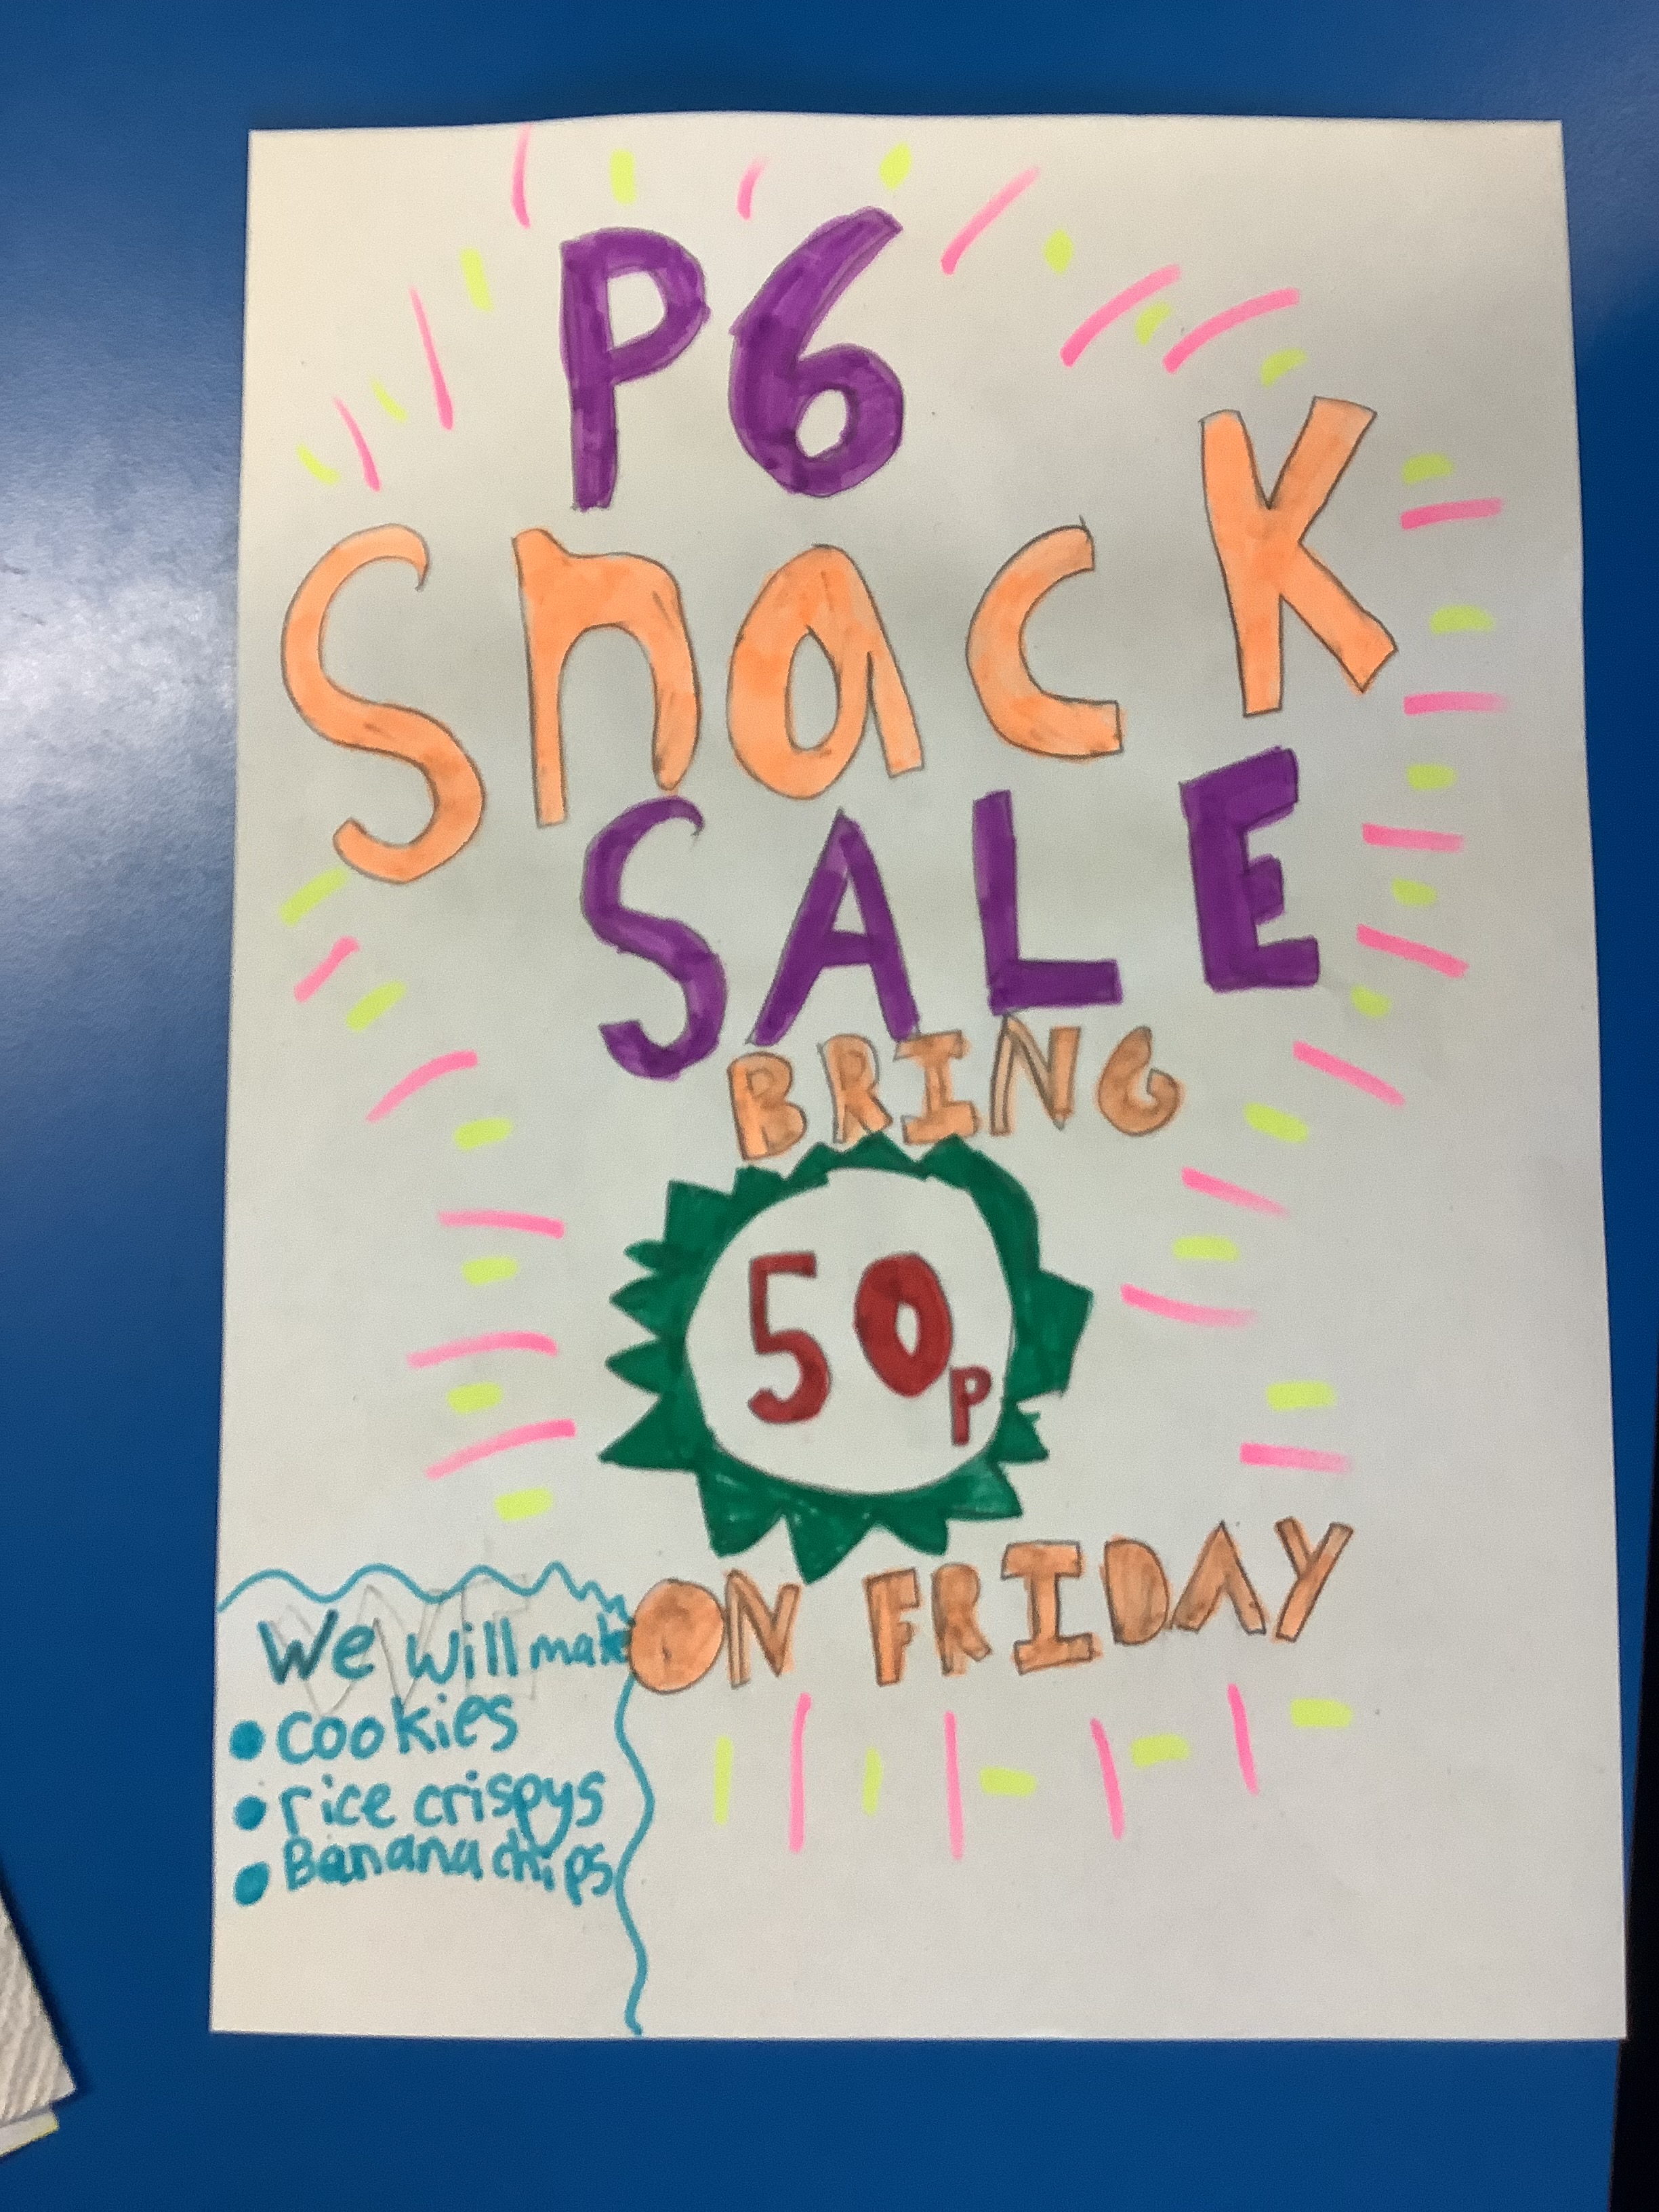 P6
Snack
SALE
BRING
50p
ON FRIDAY
We will make
• cookies
• rice crispys
• Banana chips